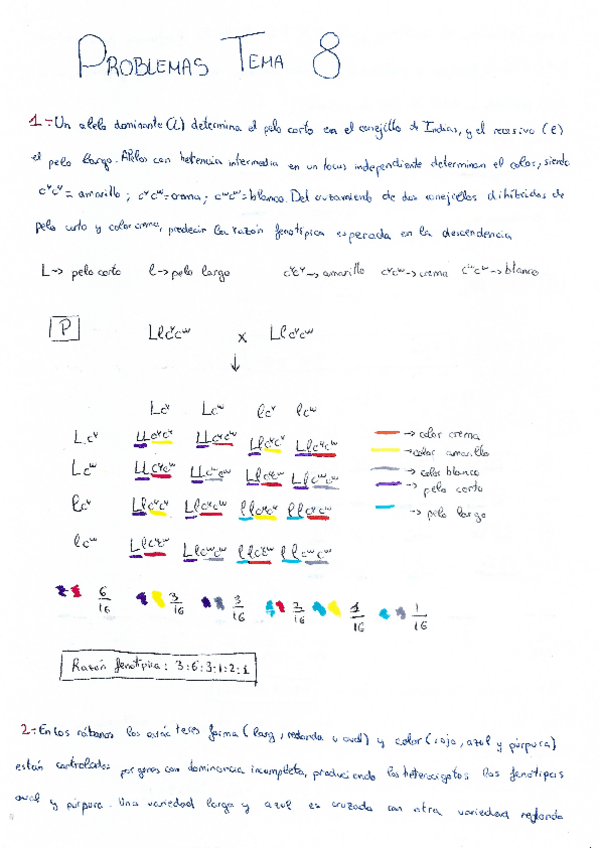 PROBLEMAS TEMA 8
1.- Un alelo dominante (L) determina el pelo corto en el conejillo de Indias, y el recesivo (l)
el pelo largo. Alelos con herencia intermedia en un locus independiente determinan el color, siendo
cʸcʸ = amarillo ; cʸcʷ = crema ; cʷcʷ = blanco. Del cruzamiento de dos conejillos dihíbridos de
pelo corto y color crema, predecir la razón fenotípica esperada en la descendencia
L -> pelo corto l -> pelo largo cʸcʸ -> amarillo cʸcʷ -> crema cʷcʷ -> blanco
P Llcʸcʷ x Llcʸcʷ
↓
Lcʸ Lcʷ lcʸ lcʷ
Lcʸ LLcʸcʸ LLcʸcʷ Llcʸcʸ Llcʸcʷ → color crema
→ color amarillo
Lcʷ LLcʸcʷ LLcʷcʷ Llcʸcʷ Llcʷcʷ → color blanco
→ pelo corto
lcʸ Llcʸcʸ Llcʸcʷ llcʸcʸ llcʸcʷ → pelo largo
lcʷ Llcʸcʷ Llcʷcʷ llcʸcʷ llcʷcʷ
6/16 3/16 3/16 2/16 1/16 1/16
Razón fenotípica : 3:6:3:1:2:1
2.- En los rábanos los caracteres forma (larg, redonda u oval) y color (rojo, azul y púrpura)
están controlados por genes con dominancia incompleta, produciendo los heterocigotos los fenotipos
oval y púrpura. Una variedad larga y azul es cruzada con otra variedad redonda